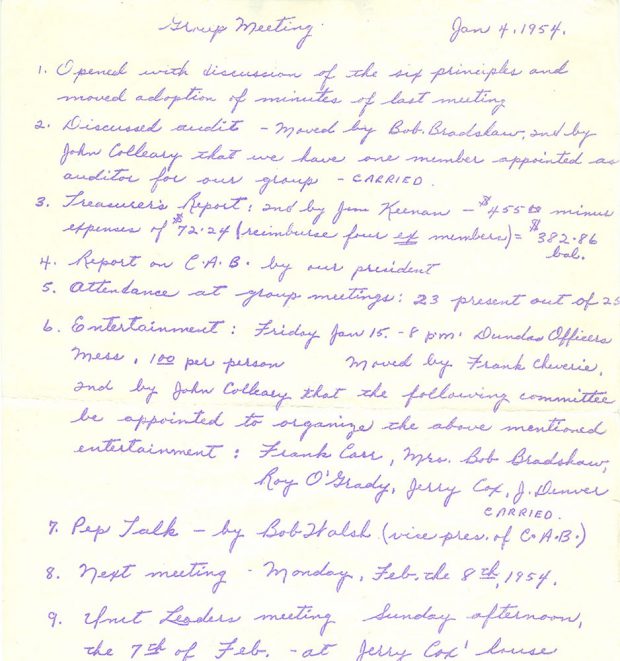 Group Meeting. Jan 4, 1954.
1. Opened with discussion of the six principles and
moved adoption of minutes of last meeting
2. Discussed audit - Moved by Bob Bradshaw, 2nd by
John Colleary that we have one member appointed as
auditor for our group - CARRIED.
3. Treasurer's Report: 2nd by Jim Keenan - $455 minus
expenses of $72.24 (reimburse four ex members) = $382.86
bal.
4. Report on C.A.B. by our president
5. Attendance at group meetings: 23 present out of 25
6. Entertainment: Friday Jan 15. - 8 pm. Dundas Officers
Mess, 1.00 per person Moved by Frank Cheverie,
2nd by John Colleary that the following committee
be appointed to organize the above mentioned
entertainment: Frank Carr, Mrs. Bob Bradshaw,
Roy O'Grady, Jerry Cox, J. Denver
CARRIED.
7. Pep Talk - by Bob Walsh (vice pres. of C.A.B.)
8. Next meeting - Monday, Feb. the 8th, 1954.
9. Unit Leaders meeting Sunday afternoon,
the 7th of Feb. - at Jerry Cox' house